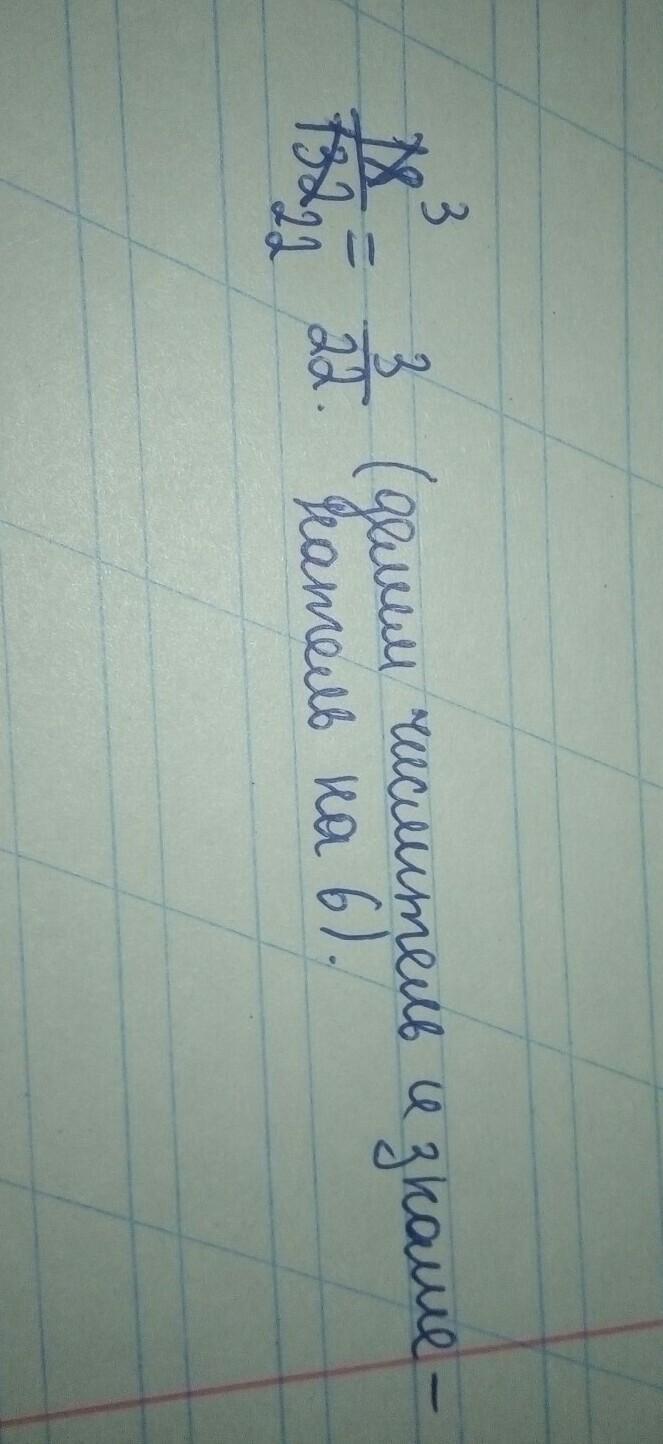 18 3
132 22 = 3/22. (делим числитель и знаме-
натель на 6).